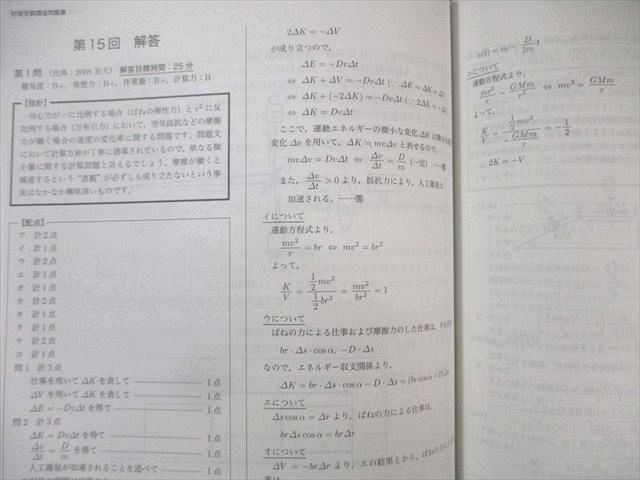 物理受験講座問題集
第15回 解答
第1問 (出典:2008 京大) 解答目標時間:25分
難易度:B+, 発想力:B+, 作業量:B+, 計算力:B
【指針】
向心力が r に比例する場合(ばねの弾性力)と r² に反
比例する場合(万有引力)において,空気抵抗などの摩擦
力が働く場合の速度の変化率に関する問題です.問題文
において計算方針が丁寧に誘導されているので,単なる微
小量に関する計算問題と言えるでしょう.摩擦が働くと
減速するという“直観”が必ずしも成り立たないという事
実はなかなか興味深いものです.
【配点】
ア 計2点
イ 計1点
ウ 計2点
エ 計1点
オ 計1点
カ 計2点
キ 計1点
ク 計1点
ケ 計2点
コ 計1点
問1 計3点
仕事を用いて ΔK を表して 1点
ΔV を用いて ΔK を表して 1点
ΔE = −DvΔt を得て 1点
問2 計3点
ΔK = DvΔt を得て 1点
Δv/Δt = D/m を得て 1点
人工衛星が加速されることを述べて 1点
2ΔK = −ΔV
が成り立つので,
ΔE = −DvΔt
⇔ ΔK + ΔV = −DvΔt (∵ ΔE = ΔK + ΔV)
⇔ ΔK + (−2ΔK) = −DvΔt (∵ 2ΔK = −ΔV)
⇔ ΔK = DvΔt
ここで,運動エネルギーの微小な変化 ΔK は微小な
変化 Δv を用いて,ΔK ≒ mvΔv と表せるので,
mvΔv = DvΔt ⇔ Δv/Δt = D/m (一定) …答
また,Δv/Δt > 0 より,抵抗力により,人工衛星は
加速される.……答
イについて
運動方程式より,
mv²/r = br ⇔ mv² = br²
よって,
K/V = (1/2 mv²)/(1/2 br²) = mv²/br² = 1
ウについて
ばねの力による仕事および摩擦力のした仕事は,それぞれ
br·Δs·cosα, −D·Δs
なので,エネルギー収支関係より,
ΔK = br·Δs·cosα − D·Δs = (br cosα − D)Δs
エについて
Δs cosα = Δr より,ばねの力による仕事は,
brΔs cosα = brΔr
オについて
ΔV = −brΔr より,エの結果とから,ばねの力による
v(t) = v₀ − D/2m t
コについて
運動方程式より,
mv²/r = GMm/r² ⇔ mv² = GMm/r
よって,
K/V = (1/2 mv²)/(−GMm/r) = −1/2
∴ 2K = −V